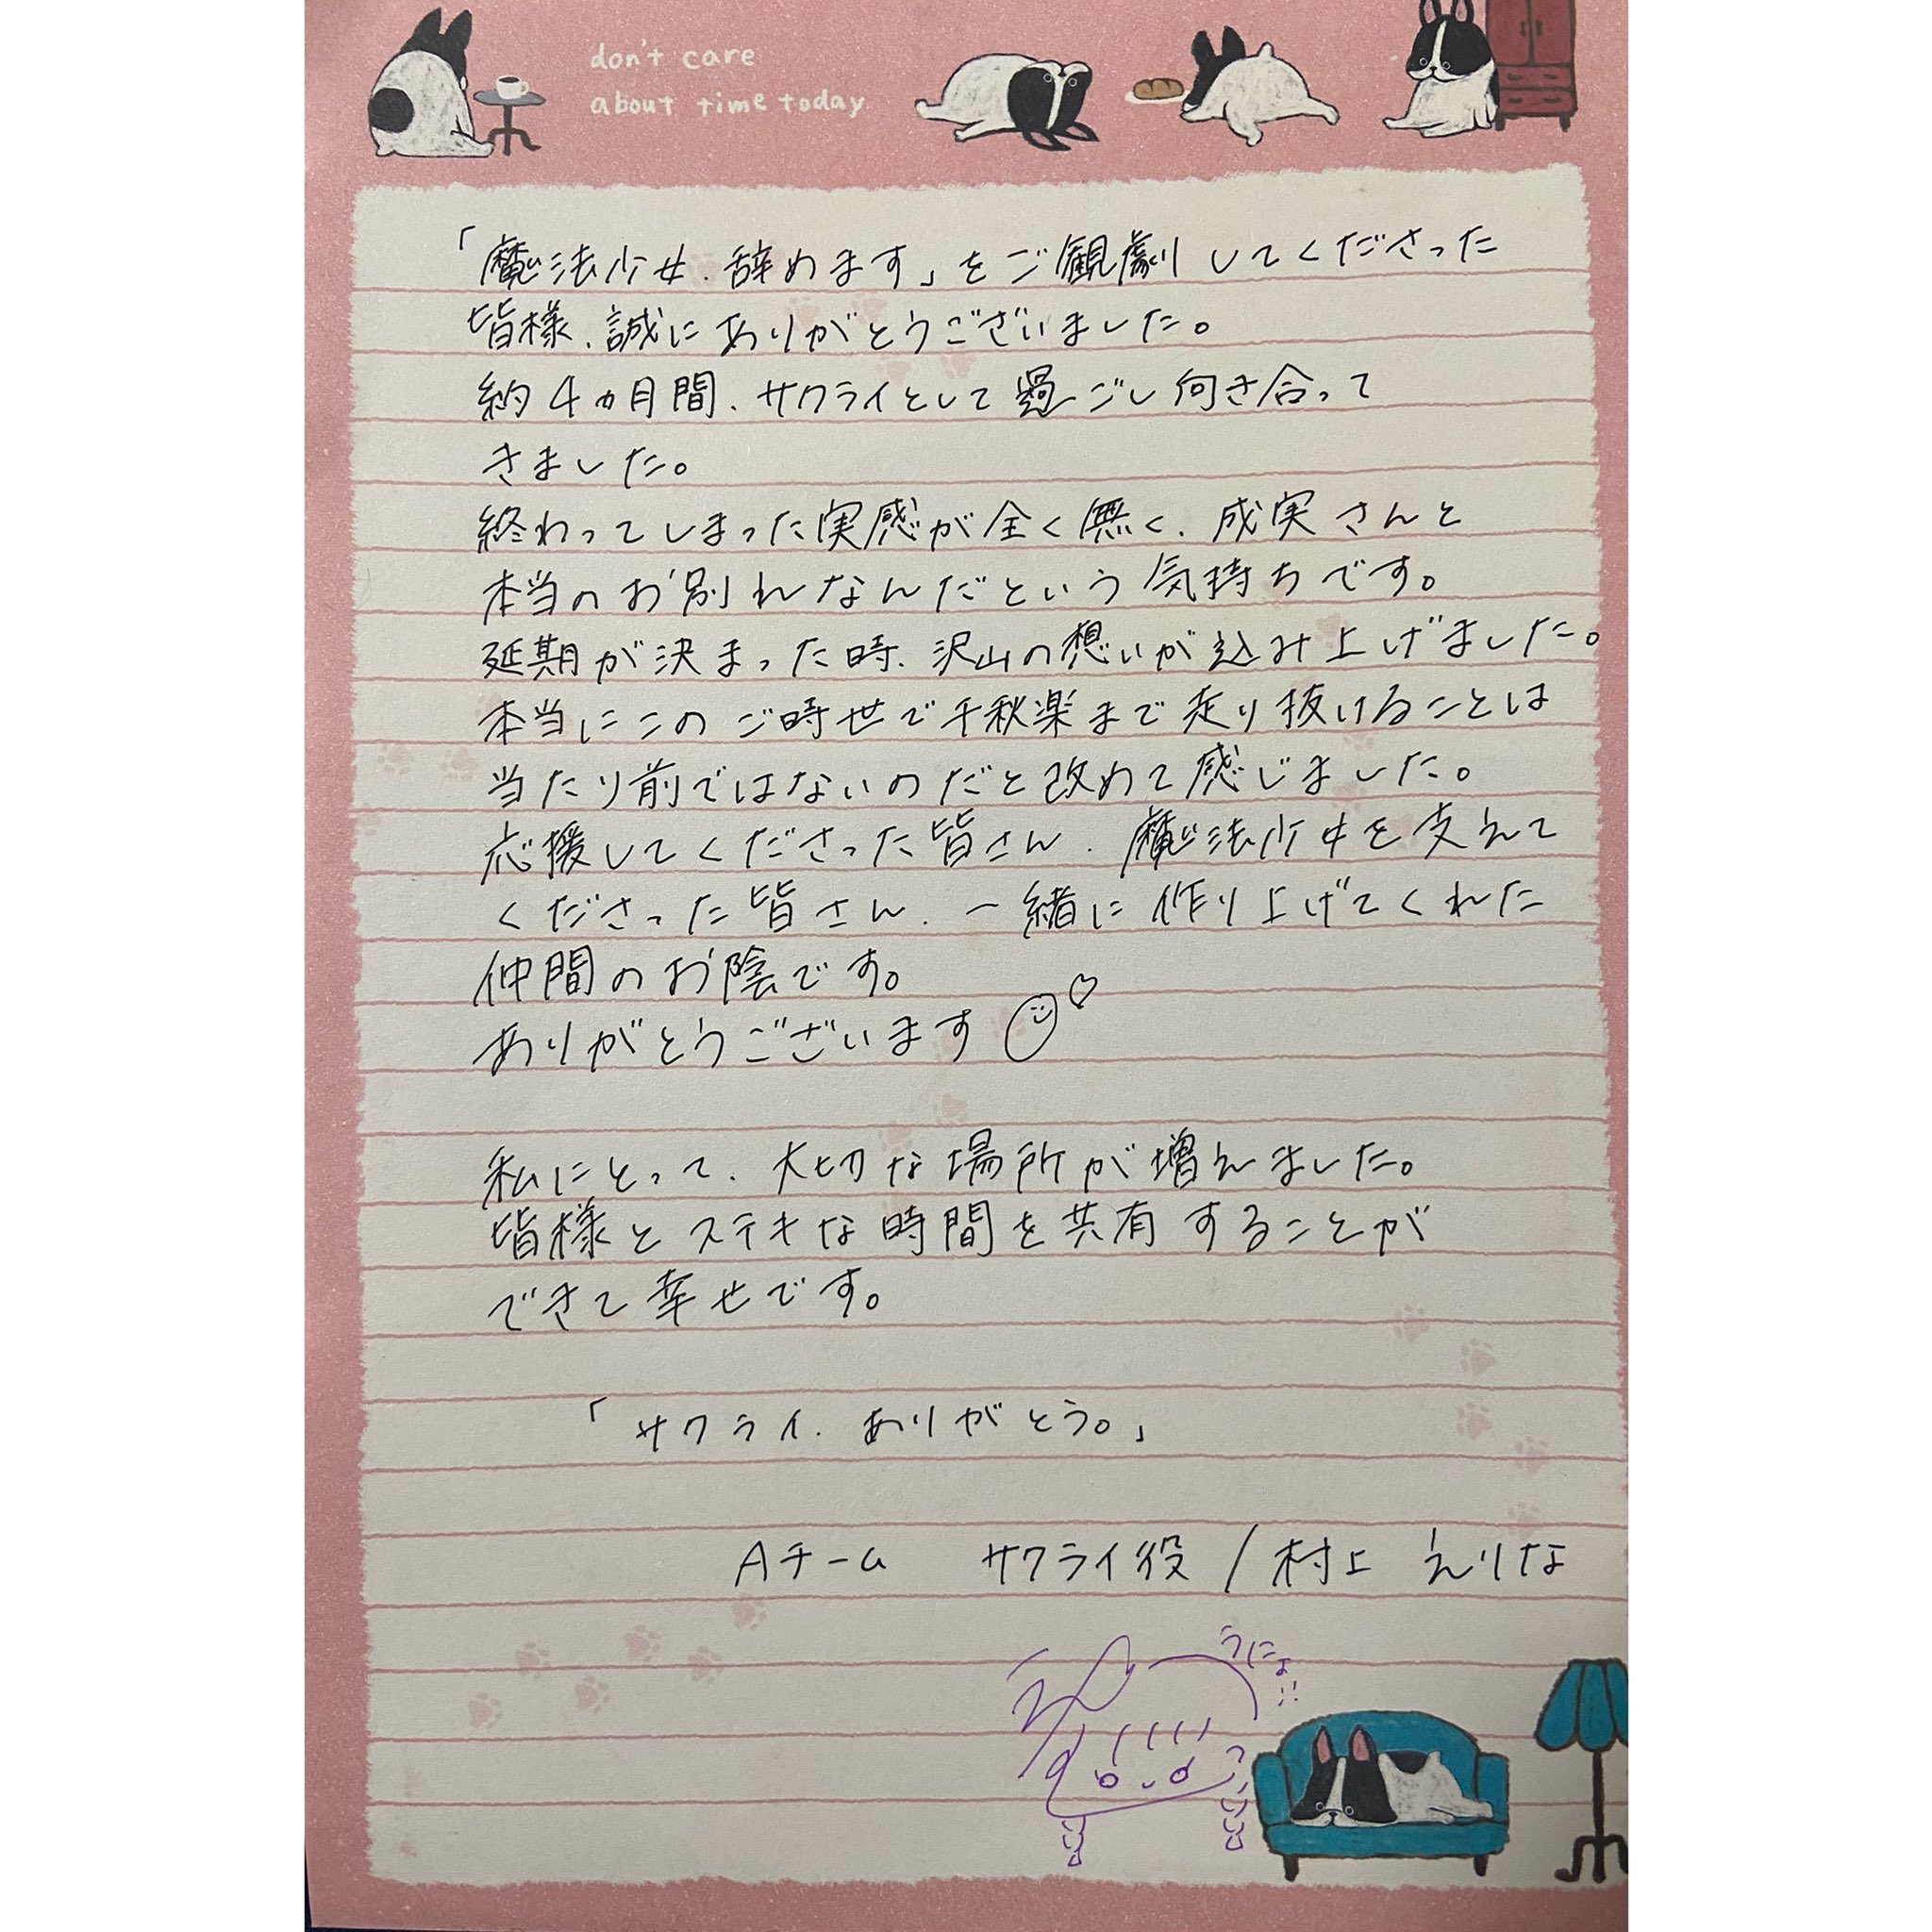 don't care
about time today
「魔法少女、辞めます」をご観劇してくださった
皆様、誠にありがとうございました。
約4ヵ月間、サクライとして過ごし向き合って
きました。
終わってしまった実感が全く無く、成実さんと
本当のお別れなんだという気持ちです。
延期が決まった時、沢山の想いが込み上げました。
本当にこのご時世で千秋楽まで走り抜けることは
当たり前ではないのだと改めて感じました。
応援してくださった皆さん、魔法少女を支えて
くださった皆さん、一緒に作り上げてくれた
仲間のお陰です。
ありがとうございます
私にとって、大切な場所が増えました。
皆様とステキな時間を共有することが
できて幸せです。
「サクライ、ありがとう。」
Aチーム サクライ役/村上 えりな
うにょ!!